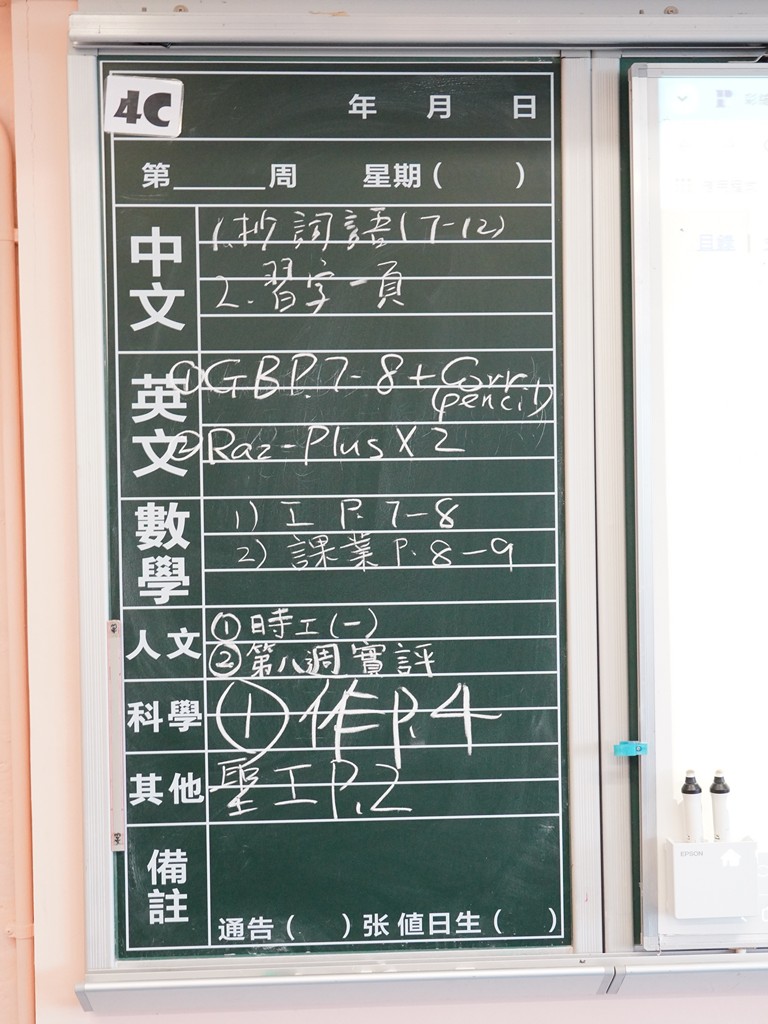 4C
年 月 日
第______周 星期( )
中文
1.抄詞語(7-12)
2.習字一頁
英文
①GBP.7-8+Corr
(pencil)
②Raz-Plus X 2
數學
1) 工 P. 7-8
2) 課業 P. 8-9
人文
①時工(一)
②第八週實評
科學
①作P.4
其他
聖工P.2
備註
通告( )张 值日生( )
目錄
EPSON